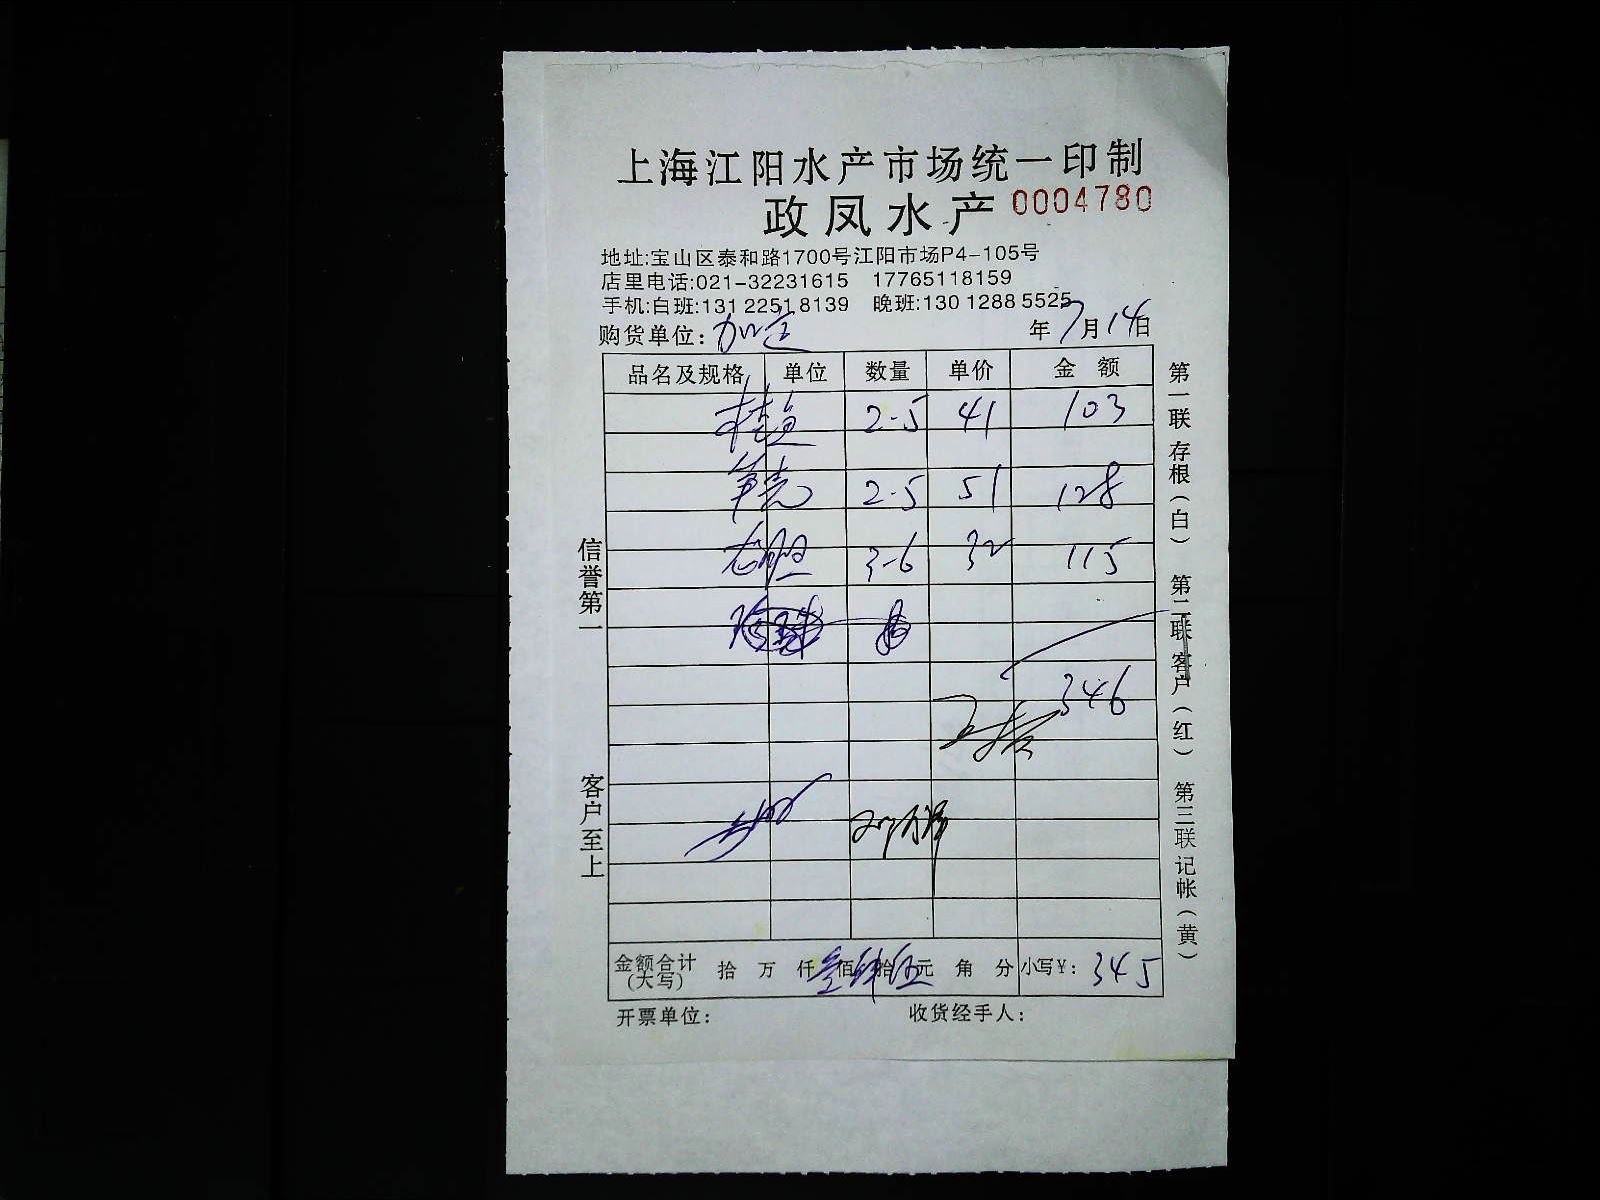 上海江阳水产市场统一印制
政凤水产 0004780
地址:宝山区泰和路1700号江阳市场P4-105号
店里电话:021-32231615 17765118159
手机:白班:131 2251 8139 晚班:130 1288 5525
购货单位: 年7月14日
品名及规格 单位 数量 单价 金额
桂鱼 2-5 41 103
2-5 51 128
3-6 32 115
346
金额合计(大写) 拾 万 仟 叁佰肆拾伍元 角 分 小写¥: 345
开票单位: 收货经手人:
信誉第一
客户至上
第一联 存根(白) 第二联 客户(红) 第三联 记帐(黄)